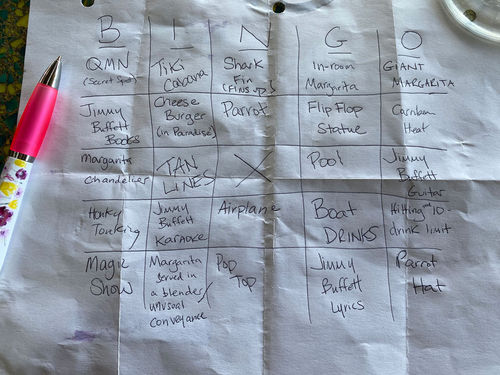 B I N G O
QMN
(Secret Spot)
Tiki
Cabana
Shark
Fin
(Fins up)
In-room
Margarita
GIANT
MARGARITA
Jimmy
Buffett
Books
Cheese
Burger
(in Paradise)
Parrot
Flip Flop
Statue
Heat
margarita
chandelier
TAN
LINES
X
Pool
Jimmy
Buffett
Guitar
Honky
Tonking
Jimmy
Buffett
Karaoke
Airplane
Boat
DRINKS
Hitting 10-
drink limit
Magic
Show
Margarita
served in
a blender/
unusual
conveyance
Pop
Top
Jimmy
Buffett
Lyrics
Parrot
Hat